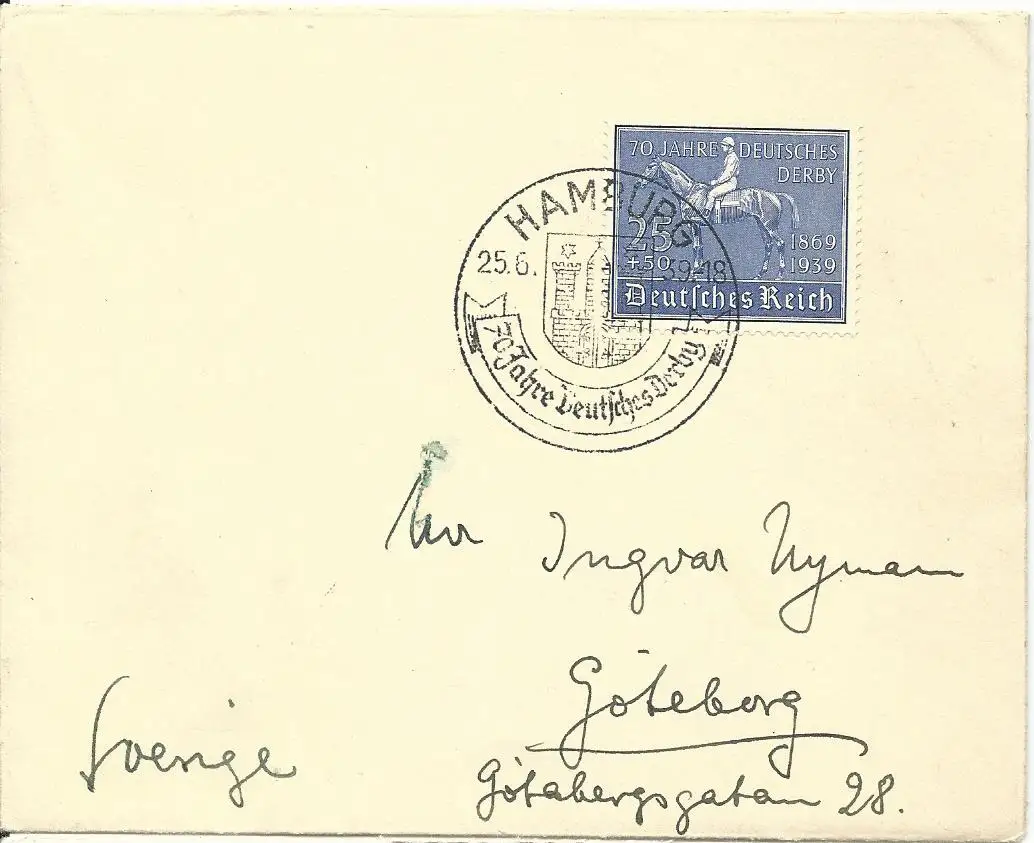 70 JAHRE DEUTSCHES
DERBY
25
+50
1869
1939
Deutsches Reich
HAMBURG
25.6.39.-18
70 Jahre Deutsches Derby
Herr Ingvar Nyman
Göteborg
Götabergsgatan 28.
Sverige